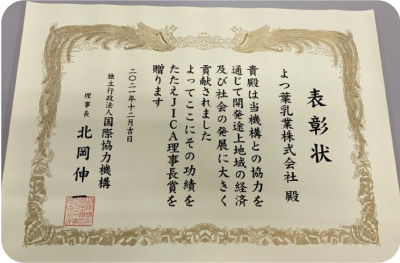 表彰状
よつ葉乳業株式会社 殿
貴殿は当機構との協力を
通じて開発途上地域の経済
及び社会の発展に大きく
貢献されました
よってここにその功績を
たたえJICA理事長賞を
贈ります
二〇二一年十二月吉日
独立行政法人国際協力機構
理事長 北岡伸一